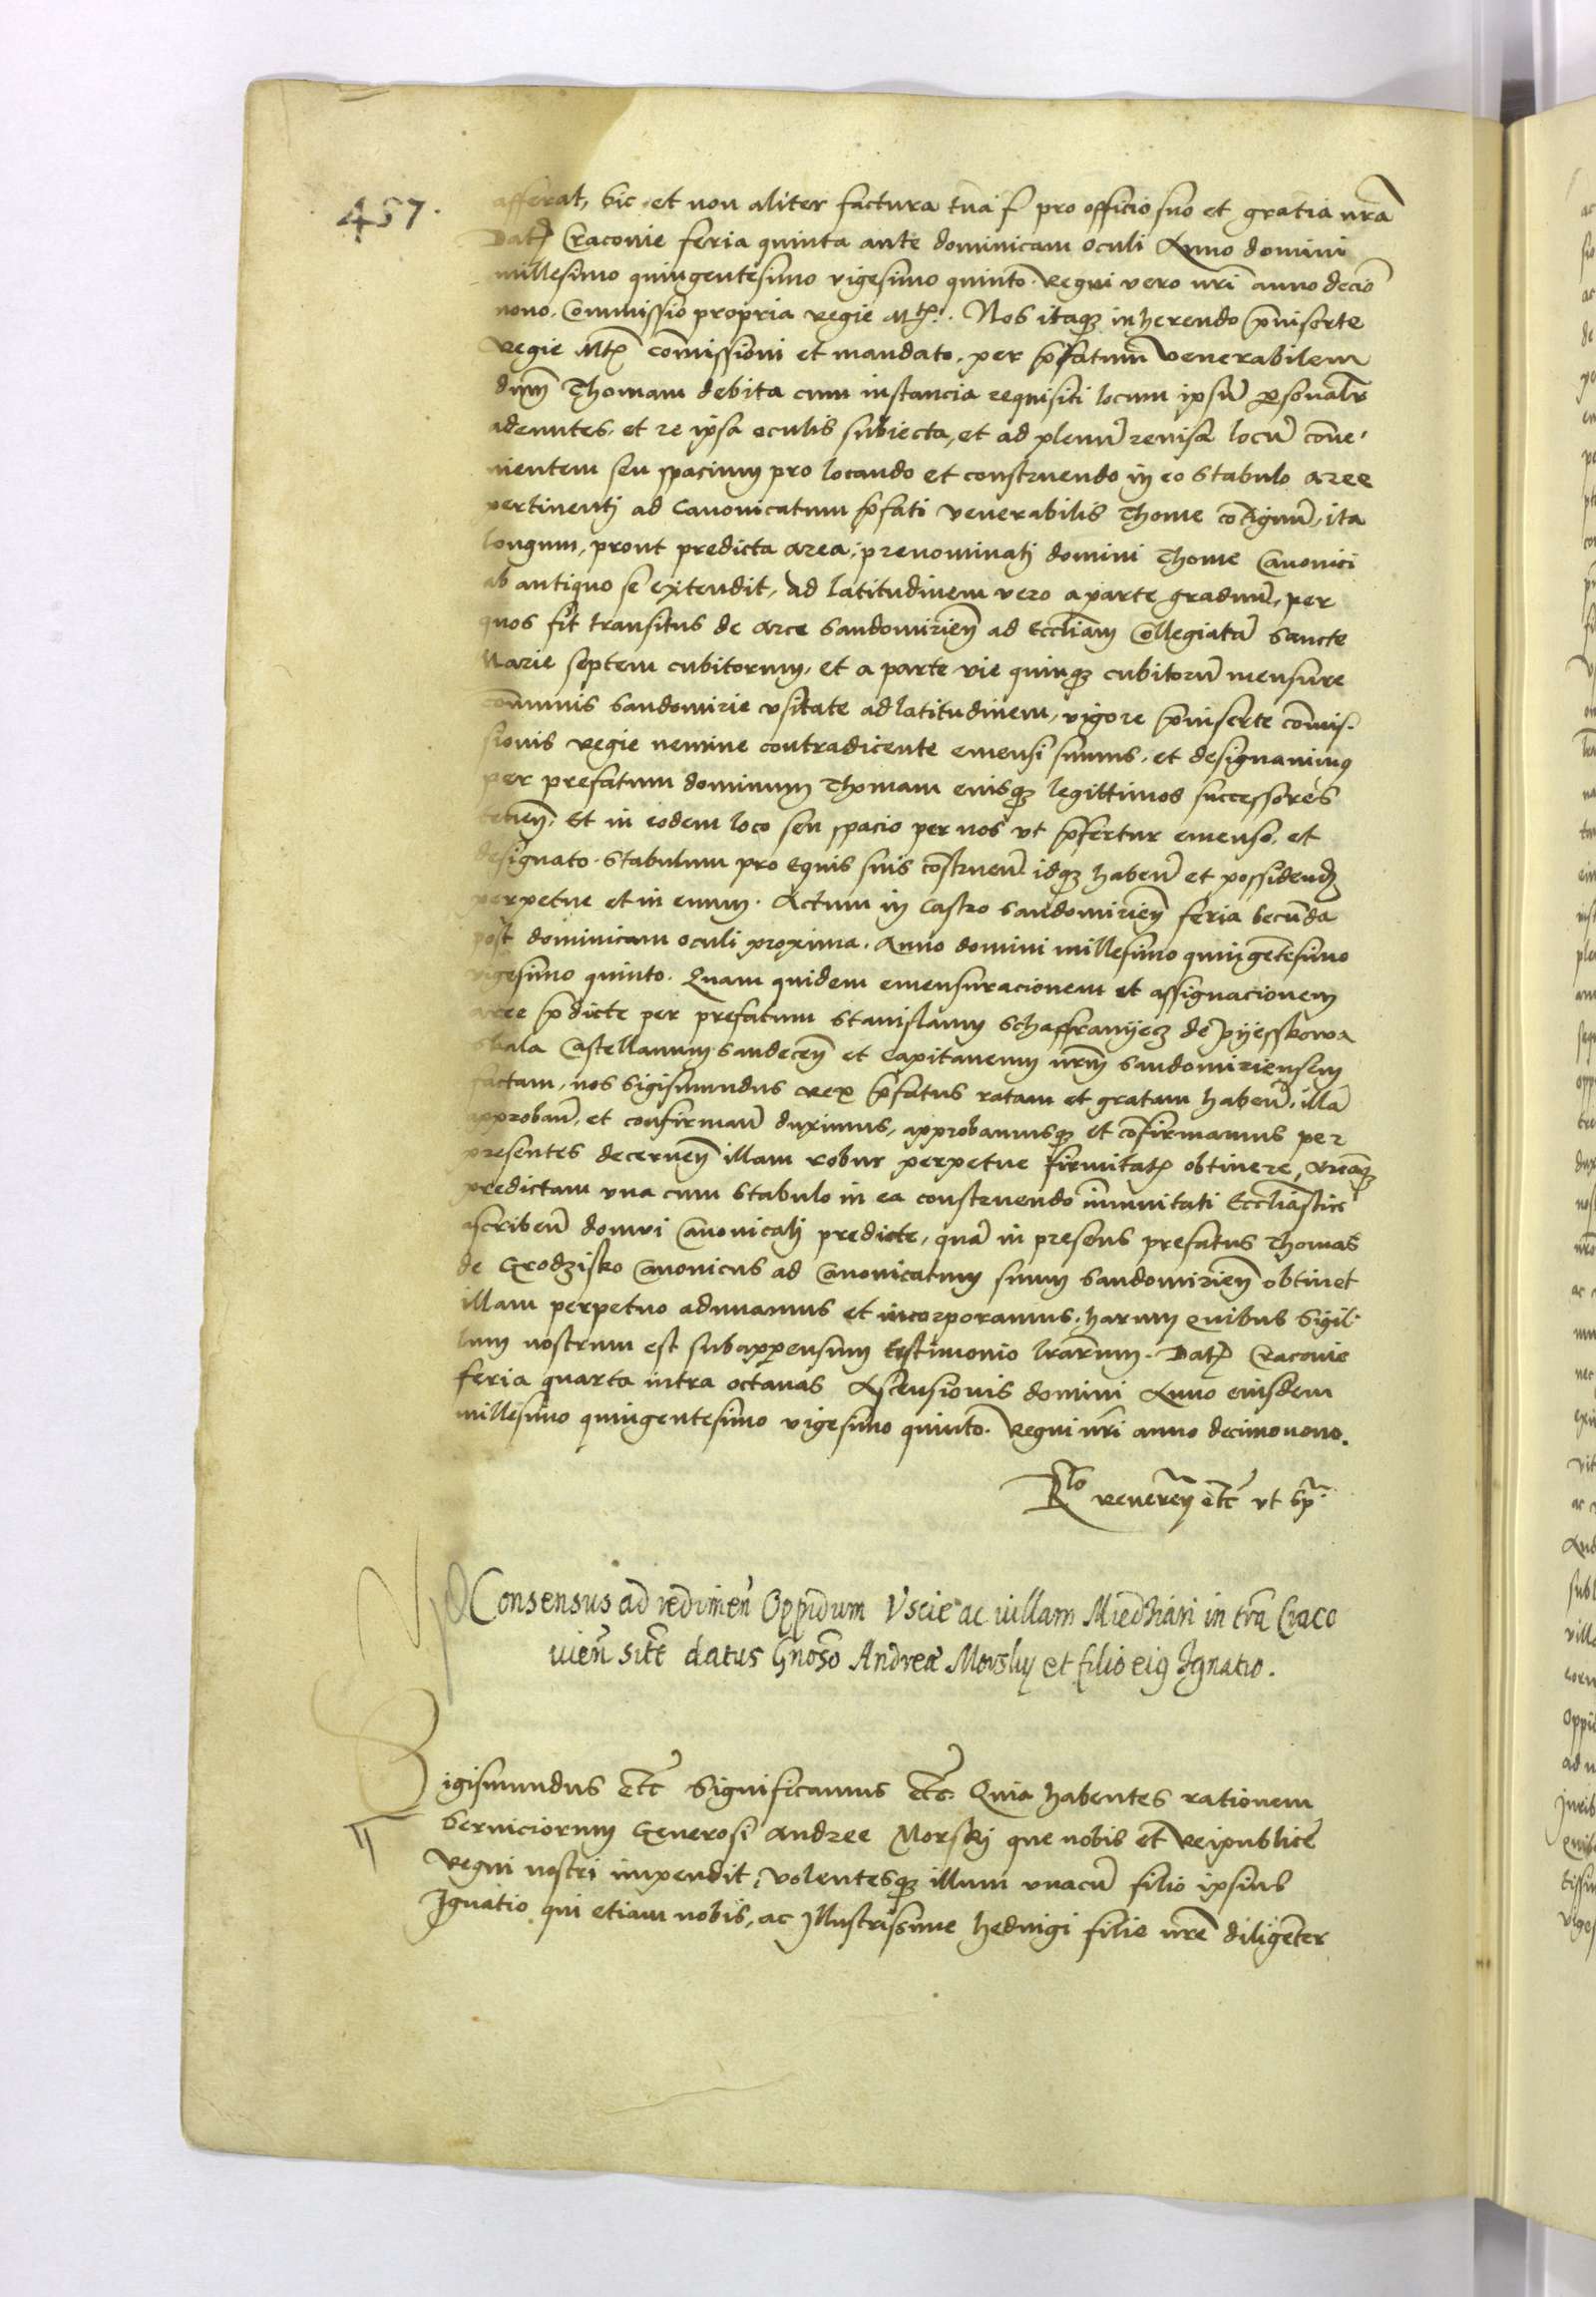 457.
afferat, sic et non aliter factura tua f pro officio suo et gratia nra
Dat Craconie feria quinta ante dominicam oculi Anno domini
millesimo quingentesimo vigesimo quinto. Regni vero nri anno decio
nono. Commissio propria regie Mtis. Nos itaq inherendo preinserte
Regie Mtis comissioni et mandato, per prefatum venerabilem
dnum Thomam debita cum instancia requisiti locum ipsu personalr
adeuntes, et re ipsa oculis subiecta, et ad plenu revisa locu conve-
nientem seu spacium pro locando et construendo in eo stabulo aree
pertinenti ad Canonicatum prefati venerabilis Thome cotiguu, ita
longum, prout predicta area, prenominati domini Thome Canonici
ab antiquo se extendit, ad latitudinem vero a parte graduu, per
quos fit transitus de arce Sandomirien ad Eccliam Collegiata Sancte
Marie septem cubitorum, et a parte vie quinq cubitoru mensure
comunis Sandomirie vsitate ad latitudinem, vigore preinserte comis-
sionis regie nemine contradicente emensi sumus, et designavimus
per prefatum dominum Thomam eiusq legittimos successores
tenen. Et in eodem loco seu spacio per nos vt prefertur emenso, et
designato. Stabulum pro Equis suis costruen. idq haben et possidend
perpetue et in evum. Actum in Castro Sandomirien feria Secunda
post dominicam oculi proxima. Anno domini millesimo quingetesimo
vigesimo quinto. Quam quidem emensuracionem et assignacionem
aree predicte per prefatum Stanislaum Schaffranyecz de Pyesskowa
skala Castellanum Sandecen et capitaneum nrum Sandomiriensem
factam, nos Sigismundus rex prefatus ratam et gratam haben, illa
approban, et confirman duximus, approbamusq et cofirmamus per
presentes decernen illam robur perpetue firmitatis obtinere, areaq
predictam vna cum stabulo in ea construendo imunitati Eccliastice
ascriben domui Canonicali predicte, qua in presens prefatus Thomas
de Grodzisko Canonicus ad Canonicatum suum Sandomirien obtinet
illam perpetuo adunamus et incorporamus. harum quibus Sigil-
lum nostrum est subappensum testimonio lrarum. Dat Craconie
feria quarta intra octavas Ascensionis domini Anno eiusdem
millesimo quingentesimo vigesimo quinto. Regni nri anno decimonono.
Rlo reveren etc vt sp.
Consensus ad redimen Oppidum Vscie ac villam Miedhiari in tra Craco
vien site datus Gnoso Andree Morsky et filio eius Ignatio.
Sigismundus etc Significamus etc Quia habentes rationem
Serviciorum Generosi Andree Morski que nobis et Reipublice
Regni nostri impendit, volentesq illum vnacu filio ipsius
Ignatio qui etiam nobis, ac Illustrissime heduigi filie nre diligeter